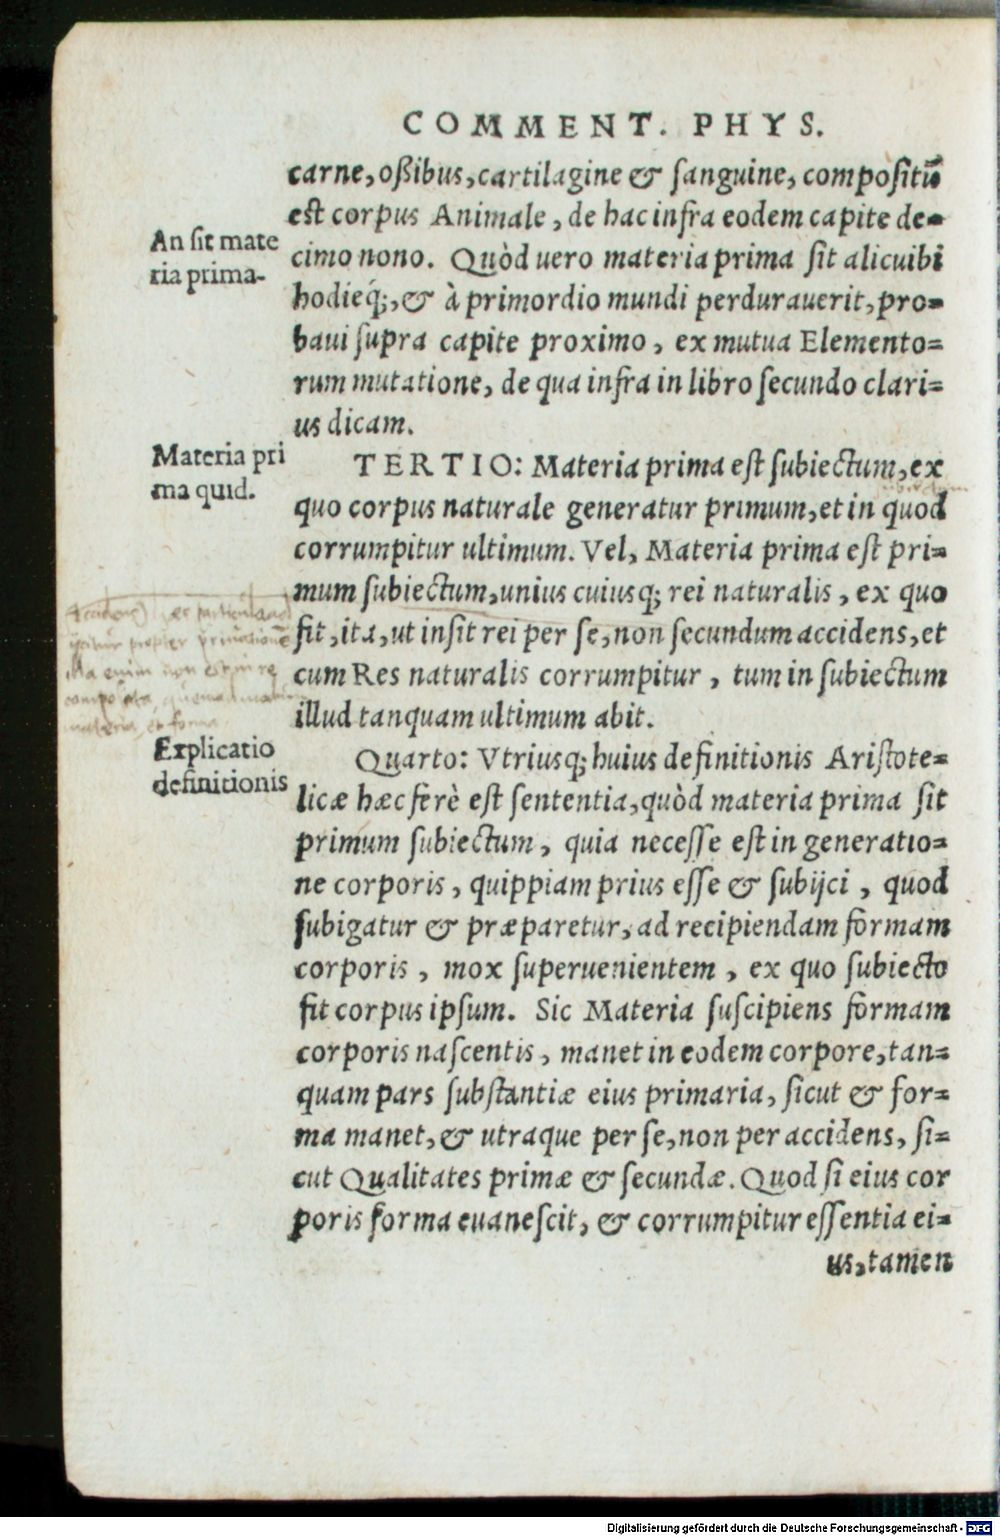 COMMENT. PHYS.
carne, oßibus, cartilagine & ſanguine, compoſitũ
est corpus Animale, de hac infra eodem capite de-
An ſit mate
ria prima.
cimo nono. Quòd uero materia prima ſit alicuibi
hodieq́;, & à primordio mundi perdurauerit, pro-
baui ſupra capite proximo, ex mutua Elemento-
rum mutatione, de qua infra in libro ſecundo clari-
us dicam.
Materia pri
ma quid.
TERTIO: Materia prima eſt ſubiectum, ex
quo corpus naturale generatur primum, et in quod
corrumpitur ultimum. Vel, Materia prima eſt pri-
mum ſubiectum, unius cuiusq; rei naturalis, ex quo
fit, ita, ut inſit rei per ſe, non ſecundum accidens, et
cum Res naturalis corrumpitur, tum in ſubiectum
illud tanquam ultimum abit.
propter priuationẽ
illa enim non est in re
composita
materia et forma
Explicatio
definitionis
Quarto: Vtriusq; huius definitionis Ariſtote-
licæ hæc ferè eſt ſententia, quòd materia prima ſit
primum ſubiectum, quia neceſſe eſt in generatio-
ne corporis, quippiam prius eſſe & ſubijci, quod
ſubigatur & præparetur, ad recipiendam formam
corporis, mox ſuperuenientem, ex quo ſubiecto
fit corpus ipſum. Sic Materia ſuſcipiens formam
corporis naſcentis, manet in eodem corpore, tan-
quam pars ſubſtantiæ eius primaria, ſicut & for-
ma manet, & utraque per ſe, non per accidens, ſi-
cut Qualitates primæ & ſecundæ. Quod ſi eius cor
poris forma euaneſcit, & corrumpitur eſſentia ei-
us, tamen
Digitalisierung gefördert durch die Deutsche Forschungsgemeinschaft - DFG